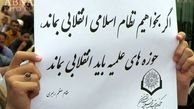 اگر بخواهیم نظام اسلامی انقلابی بماند،
حوزه های علمیه باید انقلابی بماند
مقام معظم رهبری